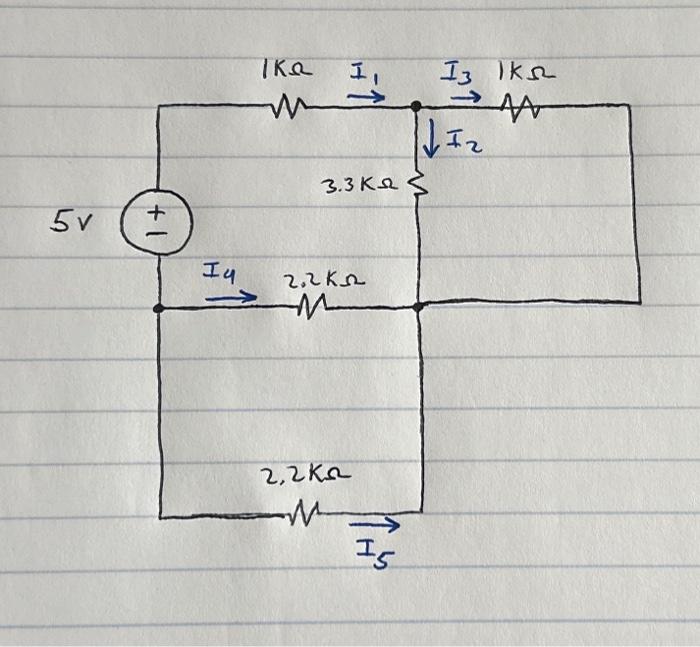 1KΩ I₁ I₃ 1KΩ
I₂
3.3KΩ
+
5V
−
I4 2.2KΩ
2.2KΩ
I5